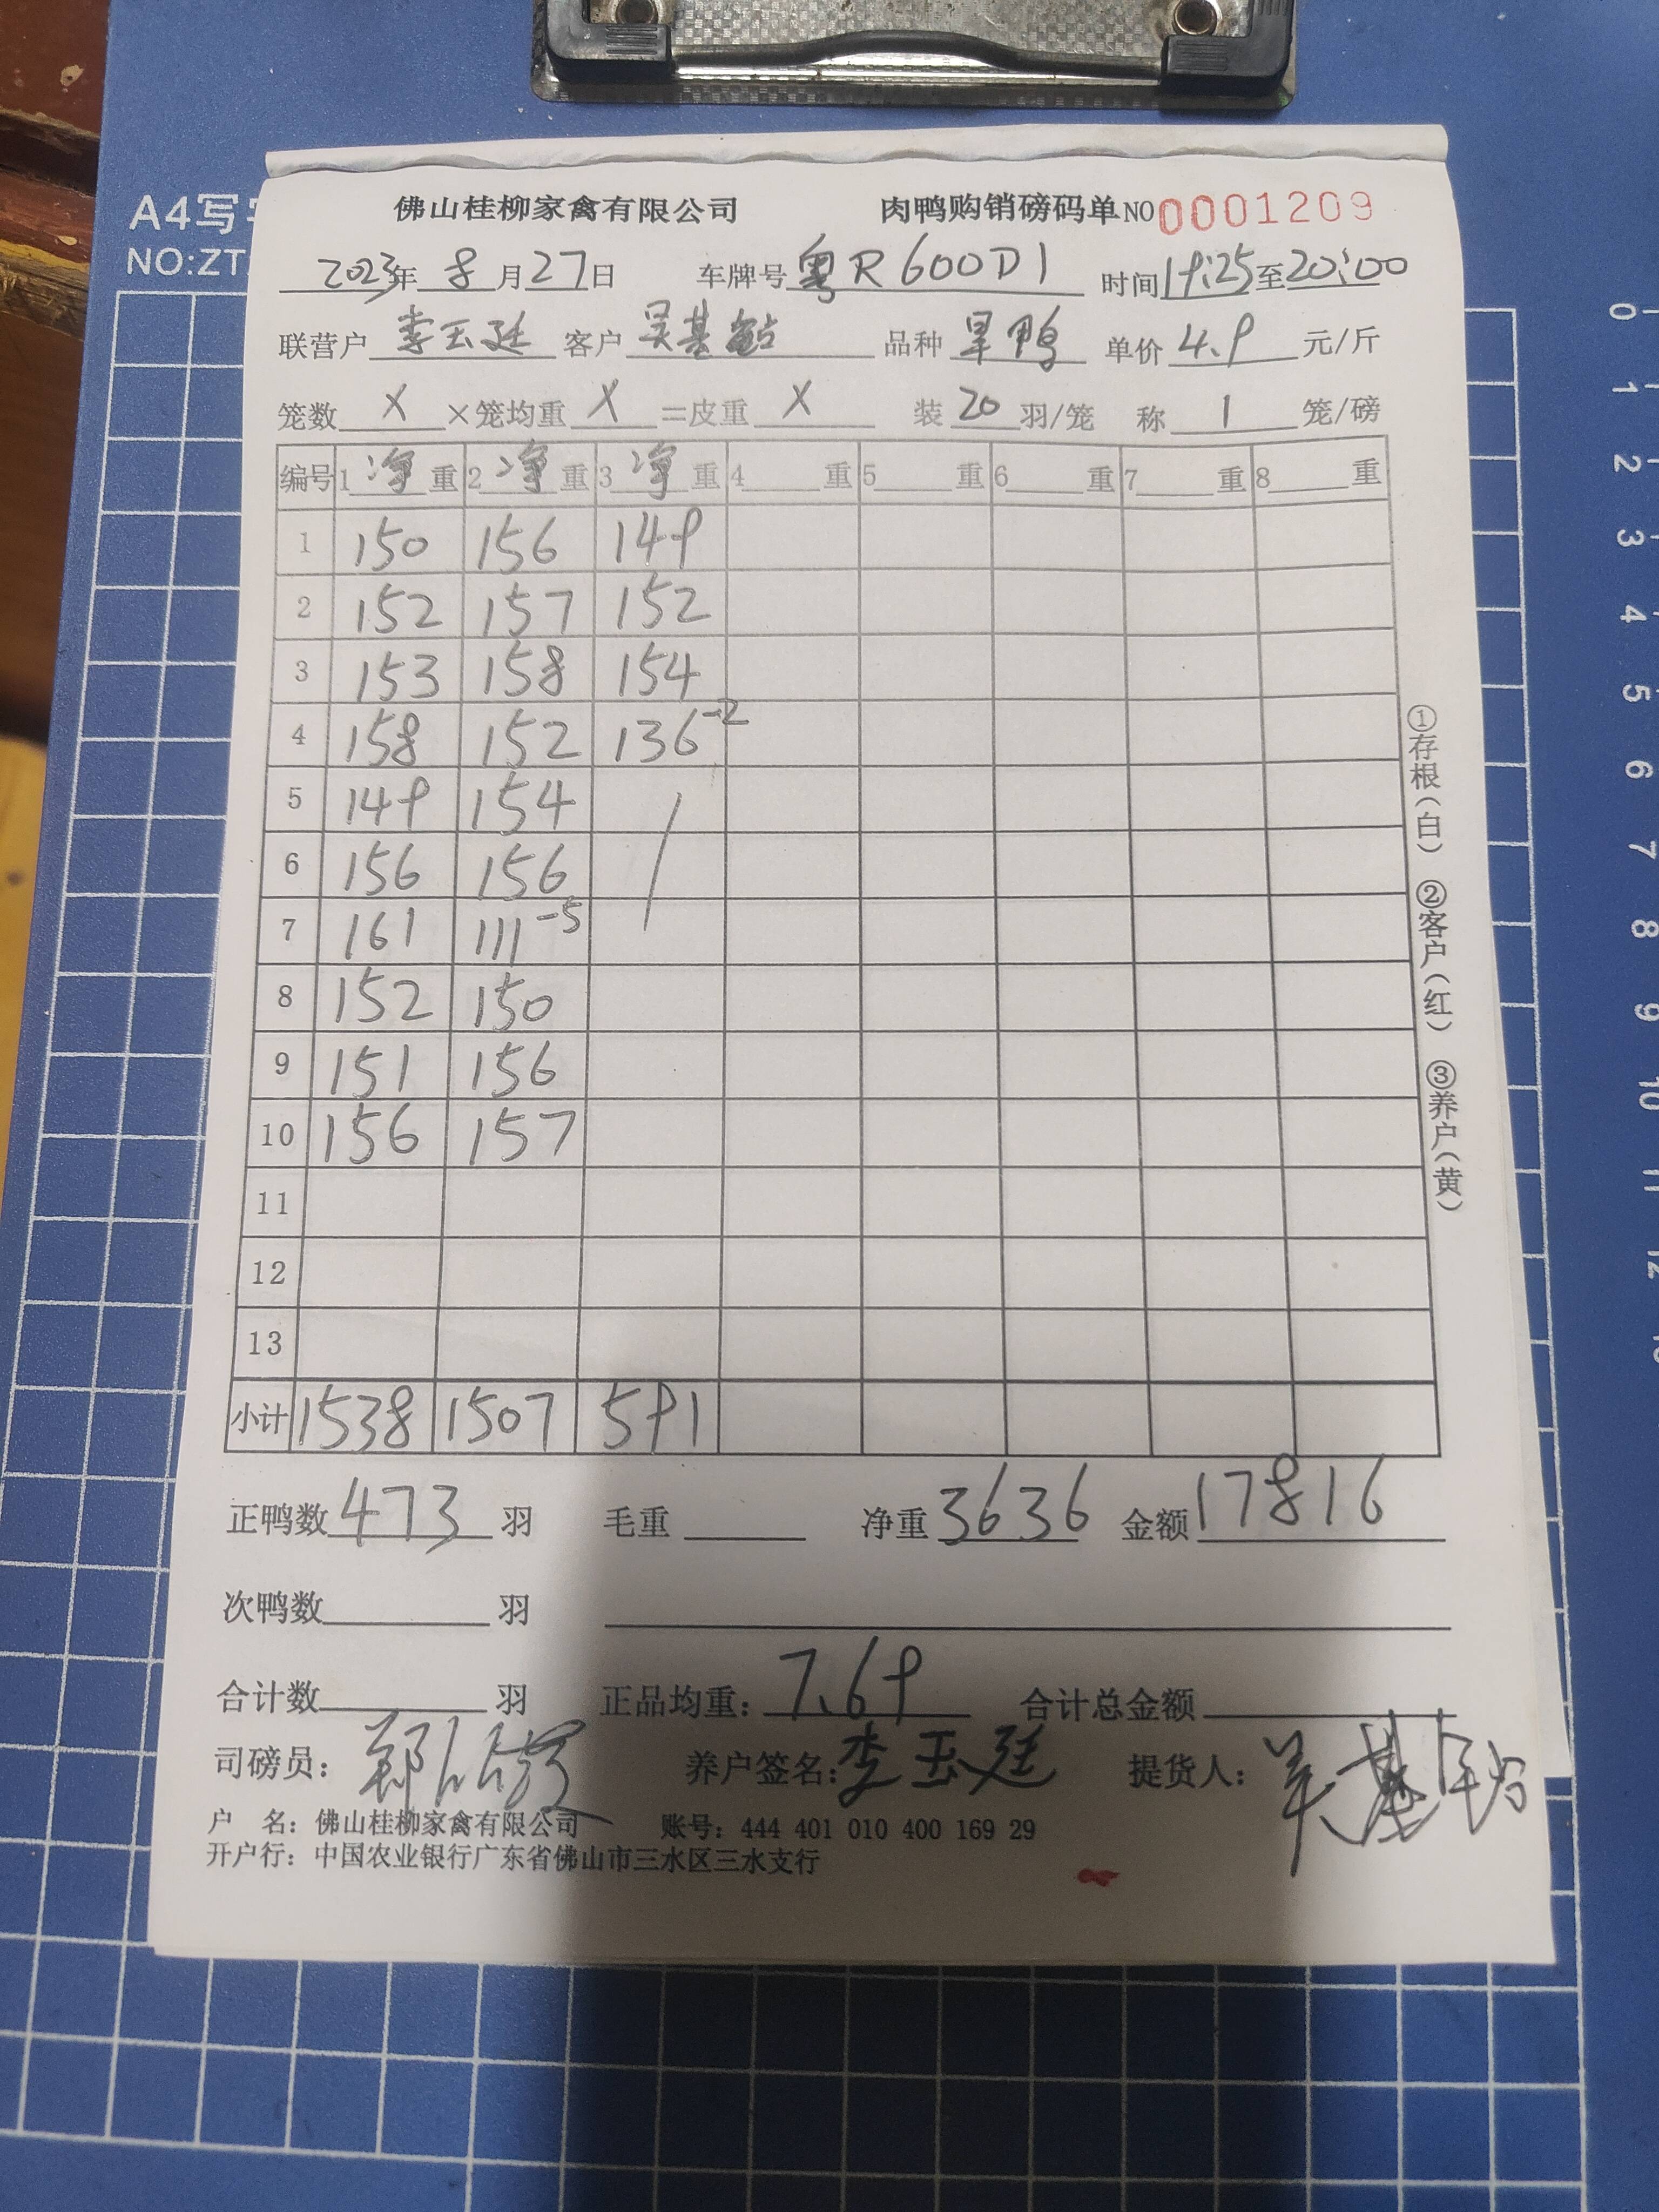 A4写
NO:ZT
佛山桂柳家禽有限公司 肉鸭购销磅码单 NO 0001209
2023年 8月27日 车牌号 粤R600D1 时间 19:25至20:00
联营户 李玉廷 客户 吴基 品种 旱鸭 单价 4.9 元/斤
笼数 X ×笼均重 X =皮重 X 装 20 羽/笼 称 1 笼/磅
编号 1 净 重 2 净 重 3 净 重 4 重 5 重 6 重 7 重 8 重
1 150 156 149
2 152 157 152
3 153 158 154
4 158 152 136-2
5 149 154
6 156 156
7 161 111-5
8 152 150
9 151 156
10 156 157
11
12
13
小计 1538 1507 591
①存根(白) ②客户(红) ③养户(黄)
正鸭数 473 羽 毛重 净重 3636 金额 17816
次鸭数 羽
合计数 羽 正品均重: 7.69 合计总金额
司磅员: 郑 养户签名: 李玉廷 提货人:
户 名: 佛山桂柳家禽有限公司 账号: 444 401 010 400 169 29
开户行: 中国农业银行广东省佛山市三水区三水支行
0
1
2
3
4
5
6
7
8
9
10
11
12